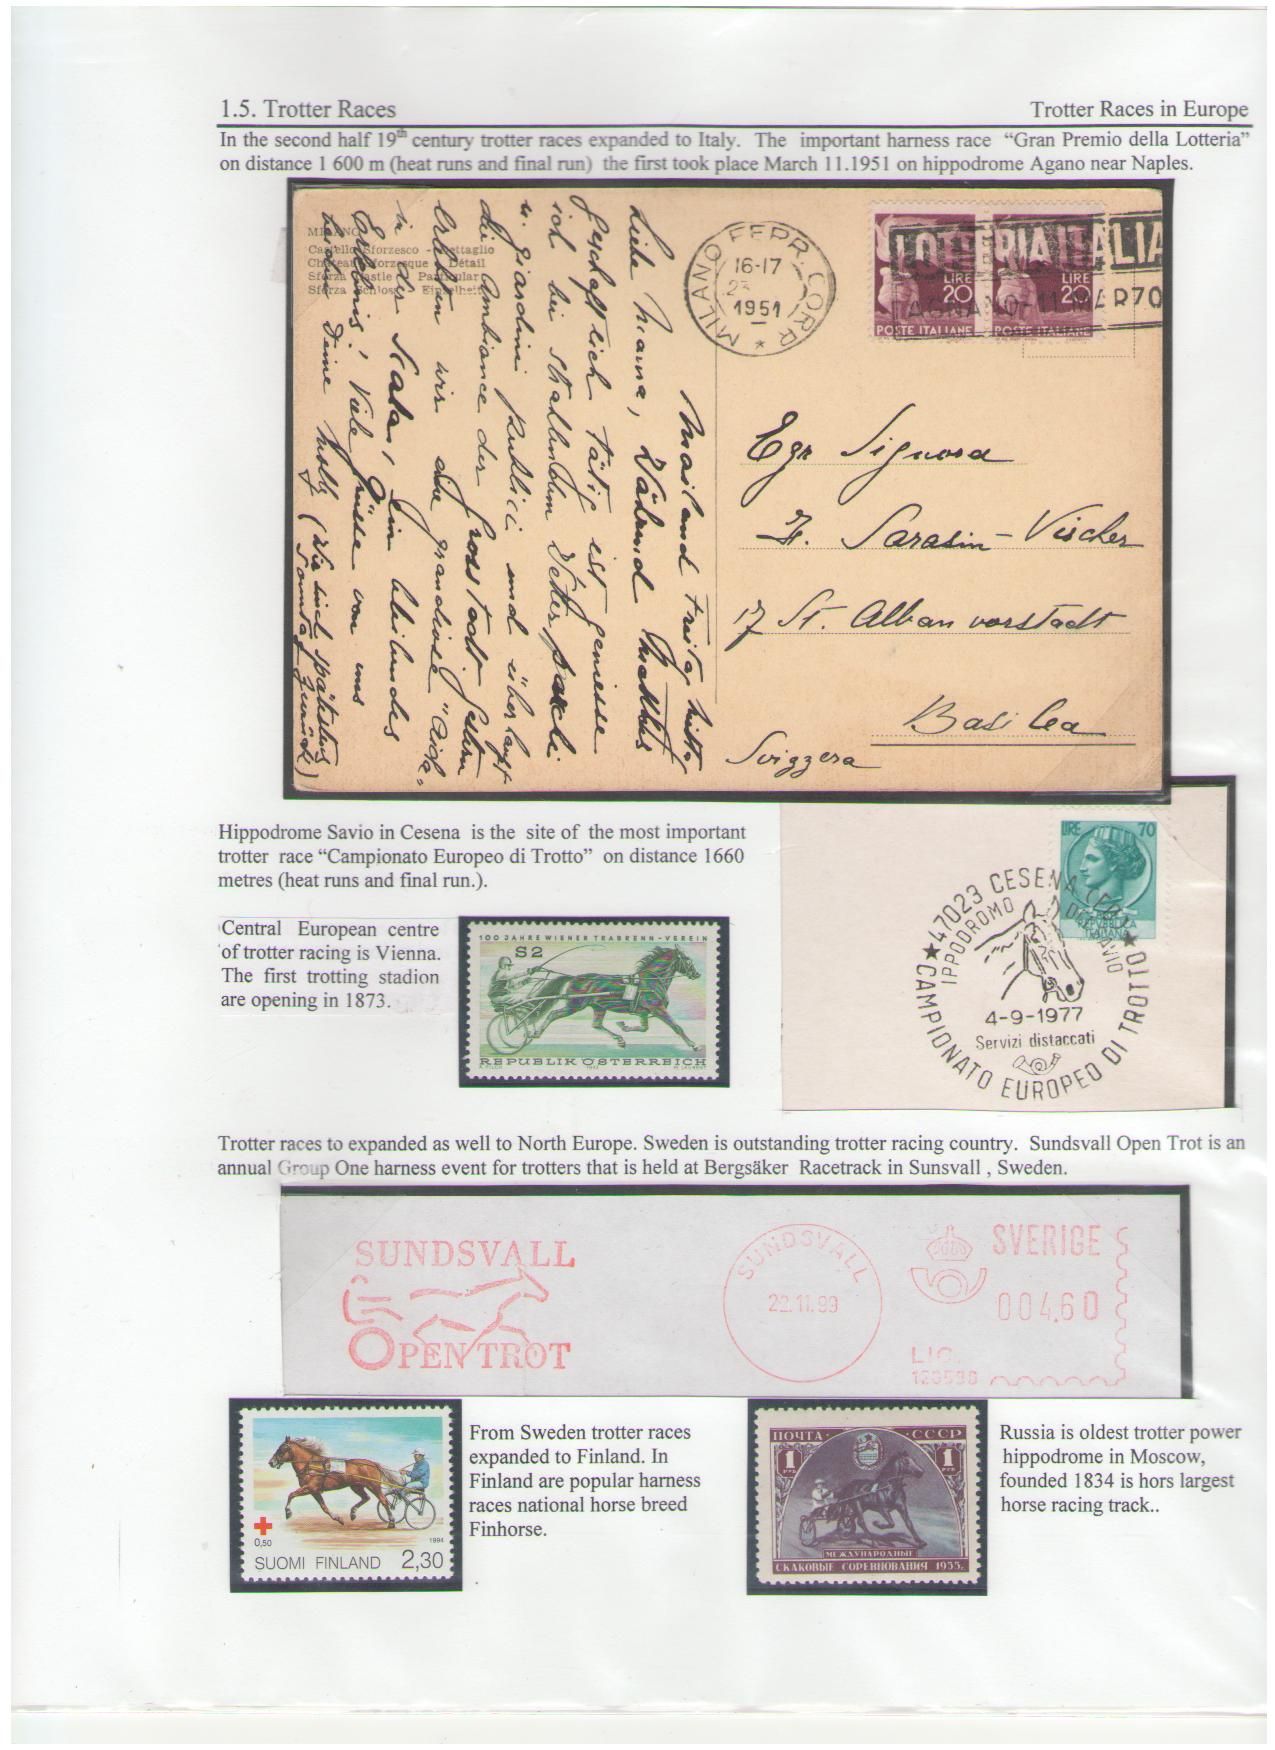 1.5. Trotter Races Trotter Races in Europe
In the second half 19th century trotter races expanded to Italy. The important harness race “Gran Premio della Lotteria”
on distance 1 600 m (heat runs and final run) the first took place March 11.1951 on hippodrome Agano near Naples.
MILANO
Castello Sforzesco - Dettaglio
Château Sforzesque - Détail
Sforza Castle - Particular
Sforza Schloss - Einzelheit
MILANO FERR. CORR.
16-17
1951
LOTTERIA ITALIA
AGNANO-11 MAR 70
LIRE 20
POSTE ITALIANE
LIRE 20
POSTE ITALIANE
Mailand Freitag Mittag
Liebe Mama, Während Matthis
geschäftlich tätig ist geniesse
ich bei strahlendem Wetter
u. Giardini publici und überhaupt
die Ambiance der Grosstadt. Gestern
erlebten wir eine grandiose
in der Scala, Ein bleibendes
Erlebnis! Viele Grüsse von uns
Deine
Egr Signora
Sarasin-Vischer
17 St. Albanvorstadt
Basilea
Svizzera
Hippodrome Savio in Cesena is the site of the most important
trotter race “Campionato Europeo di Trotto” on distance 1660
metres (heat runs and final run.).
LIRE 70
REPUBBLICA
ITALIANA
47023 CESENA
IPPODROMO DEL SAVIO
4-9-1977
Servizi distaccati
CAMPIONATO EUROPEO DI TROTTO
Central European centre
of trotter racing is Vienna.
The first trotting stadion
are opening in 1873.
100 JAHRE WIENER TRABRENN-VEREIN
S2
REPUBLIK ÖSTERREICH
Trotter races to expanded as well to North Europe. Sweden is outstanding trotter racing country. Sundsvall Open Trot is an
annual Group One harness event for trotters that is held at Bergsäker Racetrack in Sunsvall , Sweden.
SUNDSVALL
OPEN TROT
SUNDSVALL
22.11.99
SVERIGE
004,60
LIC.
From Sweden trotter races
expanded to Finland. In
Finland are popular harness
races national horse breed
Finhorse.
0,50
1994
SUOMI FINLAND 2,30
ПОЧТА СССР
1 РУБ 1 РУБ
МЕЖДУНАРОДНЫЕ
СКАКОВЫЕ СОРЕВНОВАНИЯ 1955г.
Russia is oldest trotter power
hippodrome in Moscow,
founded 1834 is hors largest
horse racing track..